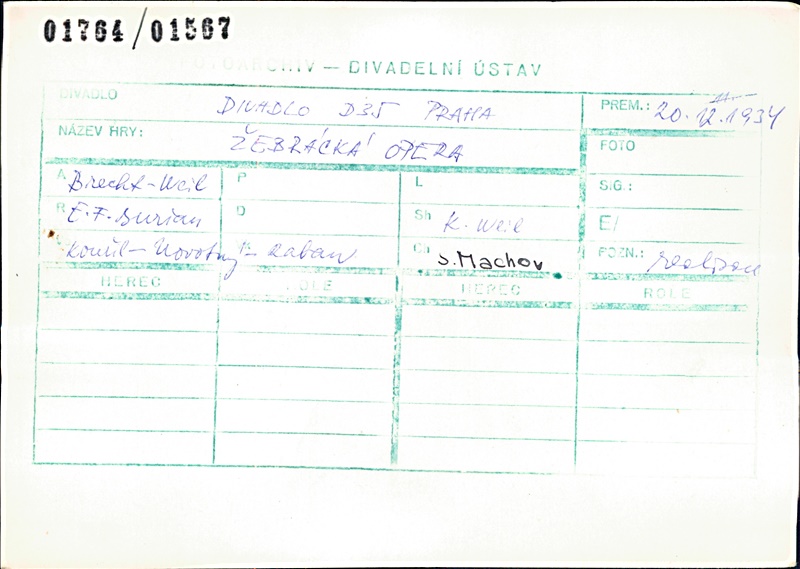 01764/01567
FOTOARCHIV — DIVADELNÍ ÚSTAV
DIVADLO DIVADLO D35 PRAHA PREM.: 20. 1934
NÁZEV HRY: ŽEBRÁCKÁ OPERA FOTO
A Brecht-Weil P L SIG.:
R E.F. Burian D Sh K. Weil E/
Kouřil - Novotný - Raban Ch S. Machov POZN.:
HEREC ROLE HEREC ROLE